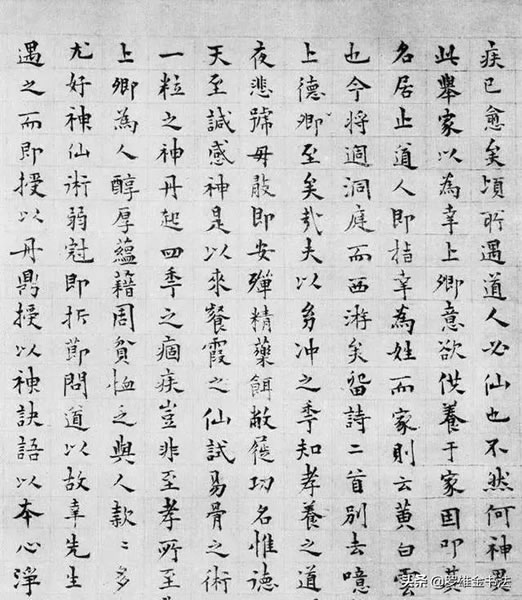 疾已愈矣頃所遇道人必仙也不然何神異
此舉家以為幸上卿意欲供養于家因叩其
名居止道人即指幸為姓而家則云黄白雲
也今將過洞庭而西游矣留詩二首別去噫
上德卿至矣哉夫以幼冲之秊知孝養之道
夜悲號毋敢即安殫精藥餌敝屣功名惟德
天至誠感神是以來餐霞之仙試易骨之術
一粒之神丹起四秊之痼疾豈非至孝所至
上卿為人醇厚蘊藉周貧恤乏與人款〻多
尤好神仙術弱冠即折節問道以故幸先生
遇之而即授以丹鼎授以神訣語以本心淨
头条 @金书法